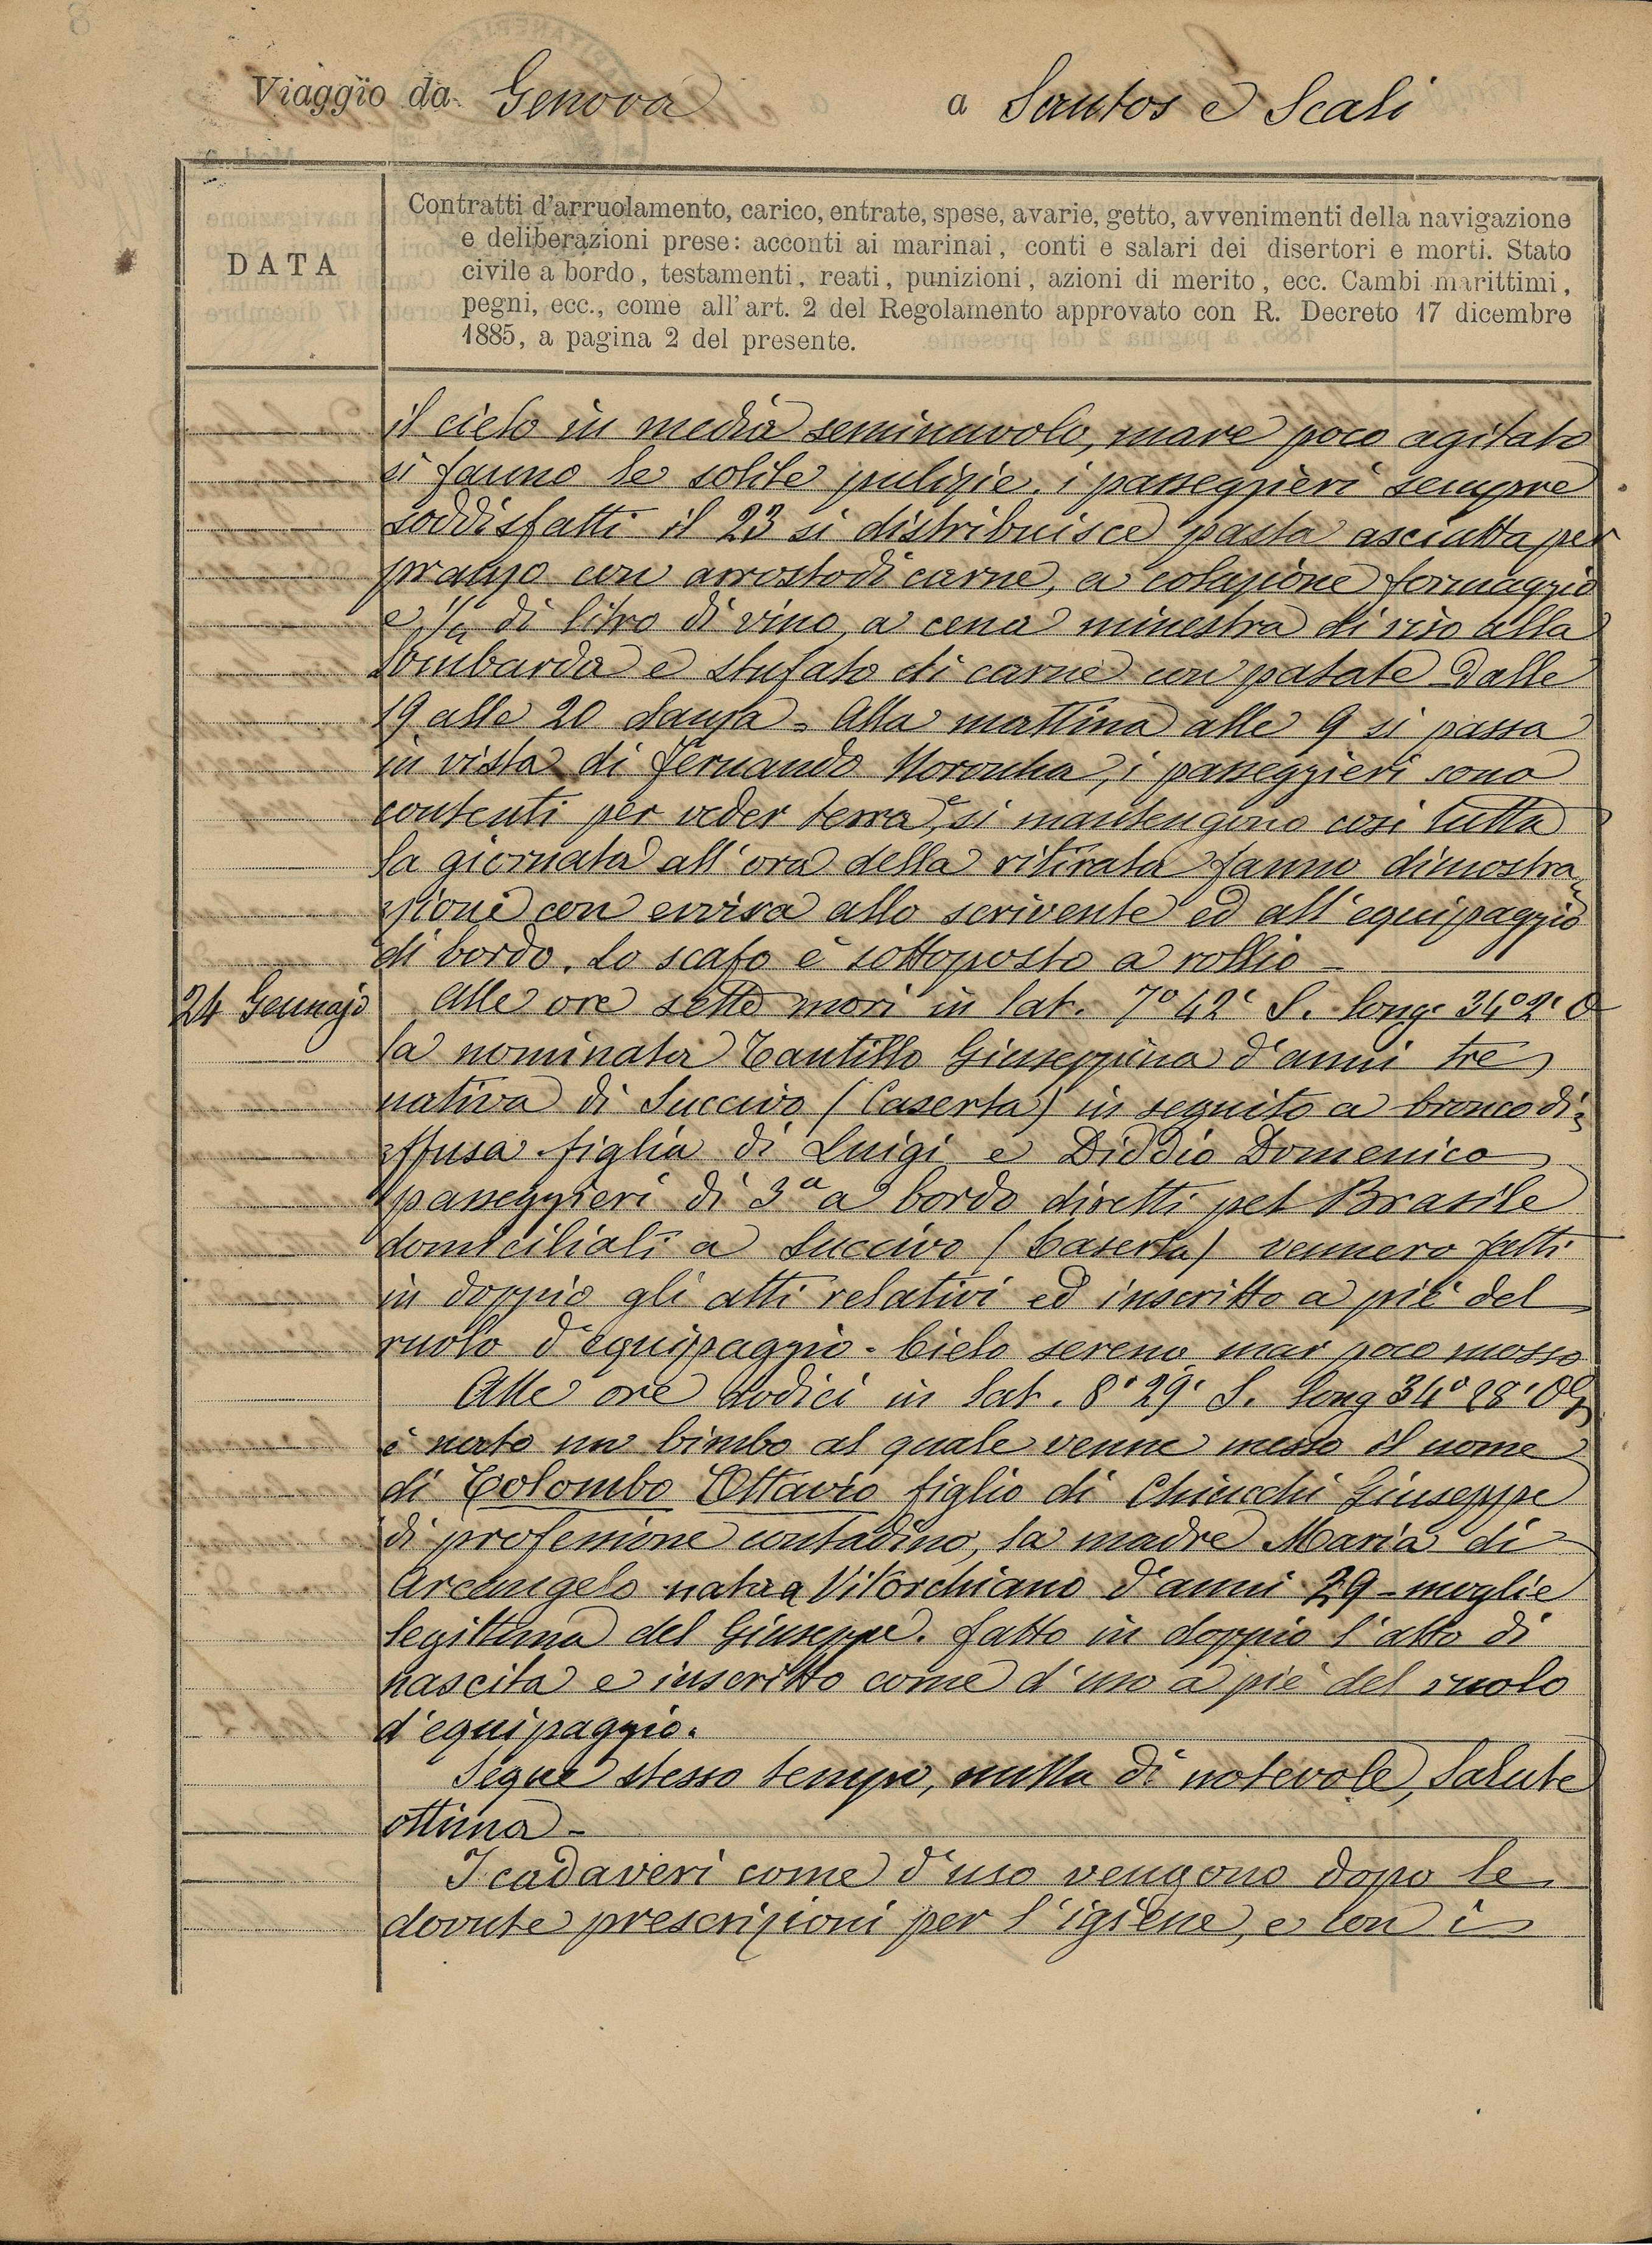 Viaggio da Genova a Santos e Scali
DATA
Contratti d'arruolamento, carico, entrate, spese, avarie, getto, avvenimenti della navigazione
e deliberazioni prese: acconti ai marinai, conti e salari dei disertori e morti. Stato
civile a bordo, testamenti, reati, punizioni, azioni di merito, ecc. Cambi marittimi,
pegni, ecc., come all'art. 2 del Regolamento approvato con R. Decreto 17 dicembre
1885, a pagina 2 del presente.
il cielo in media seminuvolo, mare poco agitato
si fanno le solite pulizie. i passeggieri sempre
soddisfatti il 23 si distribuisce pasta asciutta per
pranzo con arrosto di carne, a colazione formaggio
e 1/4 di litro di vino, a cena minestra di riso alla
lombarda e stufato di carne con patate Dalle
19 alle 20 danza - Alla mattina alle 9 si passa
in vista di Fernando Noronha, i passeggieri sono
contenti per veder terra, e si mantengono così tutta
la giornata all'ora della ritirata fanno dimostra
zione con evviva allo scrivente ed all'equipaggio
di bordo. Lo scafo è sottoposto a rollio -
24 Gennajo Alle ore sette morì in lat. 7° 42' S. long. 34° 2' O
la nominata Tantillo Giuseppina d'anni tre
nativa di Succivo (Caserta) in seguito a bronco di=
ffusa figlia di Luigi e Diddio Domenica
passeggieri di 3a a bordo diretti pel Brasile
domiciliati a Succivo (Caserta) vennero fatti
in doppio gli atti relativi ed inscritto a piè del
ruolo d'equipaggio - Cielo sereno mar poco mosso
Alle ore dodici in Lat. 8° 29' S. long 34° 28' O
è nato un bimbo al quale venne messo il nome
di Colombo Ottavio figlio di Chiucchi Giuseppe
di professione contadino, la madre Maria di
Arcangelo nata a Vitorchiano d'anni 29 - moglie
legittima del Giuseppe. fatto in doppio l'atto di
nascita e inscritto come d'uso a piè del ruolo
d'equipaggio.
Segue stesso tempo, nulla di notevole, Salute
ottima -
I cadaveri come d'uso vengono dopo le
dovute prescrizioni per l'igiene, e con i